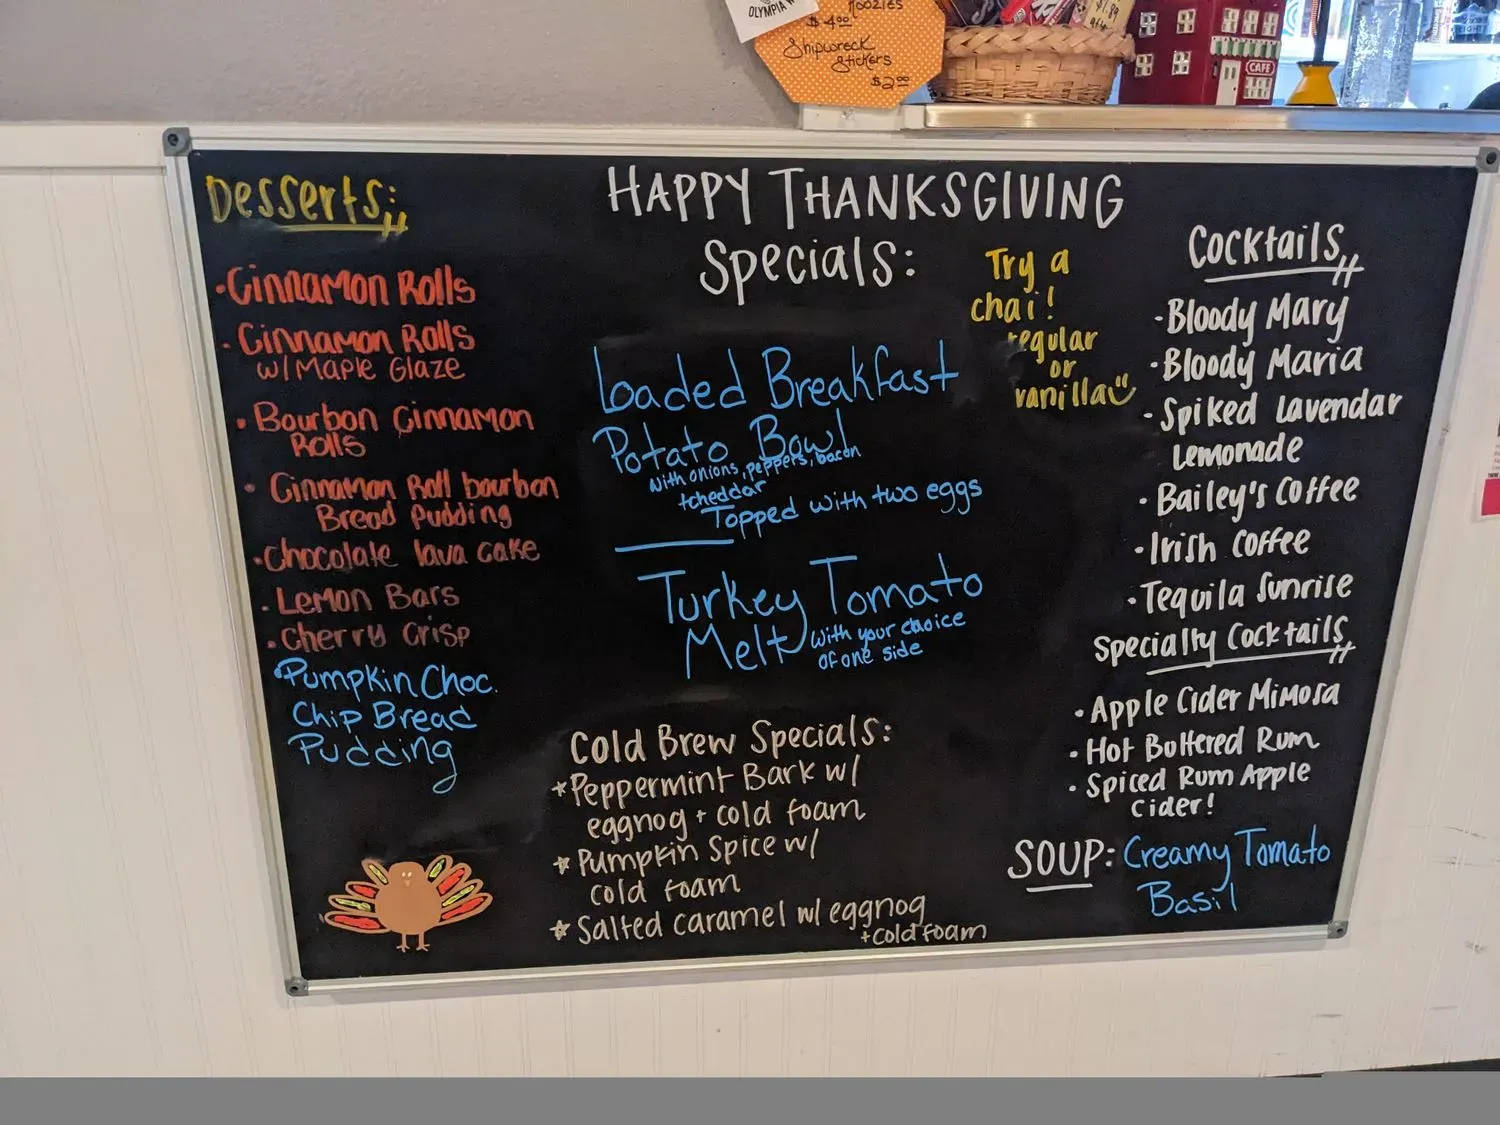 OLYMPIA
KOOZIES
$4.00
Shipwreck
Stickers
$2.00
$1.89
CAFE
HAPPY THANKSGIVING
Specials:
Desserts:
• Cinnamon Rolls
• Cinnamon Rolls
w/ Maple Glaze
• Bourbon Cinnamon
Rolls
• Cinnamon Roll bourbon
Bread Pudding
• Chocolate lava cake
• Lemon Bars
• Cherry Crisp
Pumpkin Choc.
Chip Bread
Pudding
Loaded Breakfast
Potato Bowl
with onions, peppers, bacon
+cheddar
Topped with two eggs
Turkey Tomato
Melt with your choice
of one side
Try a
chai!
regular
or
vanilla
Cold Brew Specials:
* Peppermint Bark w/
eggnog + cold foam
* Pumpkin Spice w/
cold foam
* Salted caramel w/ eggnog
+cold foam
Cocktails
• Bloody Mary
• Bloody Maria
• Spiked lavendar
Lemonade
• Bailey's Coffee
• Irish Coffee
• Tequila Sunrise
Specialty Cocktails
• Apple Cider Mimosa
• Hot Buttered Rum
• Spiced Rum Apple
Cider!
SOUP: Creamy Tomato
Basil